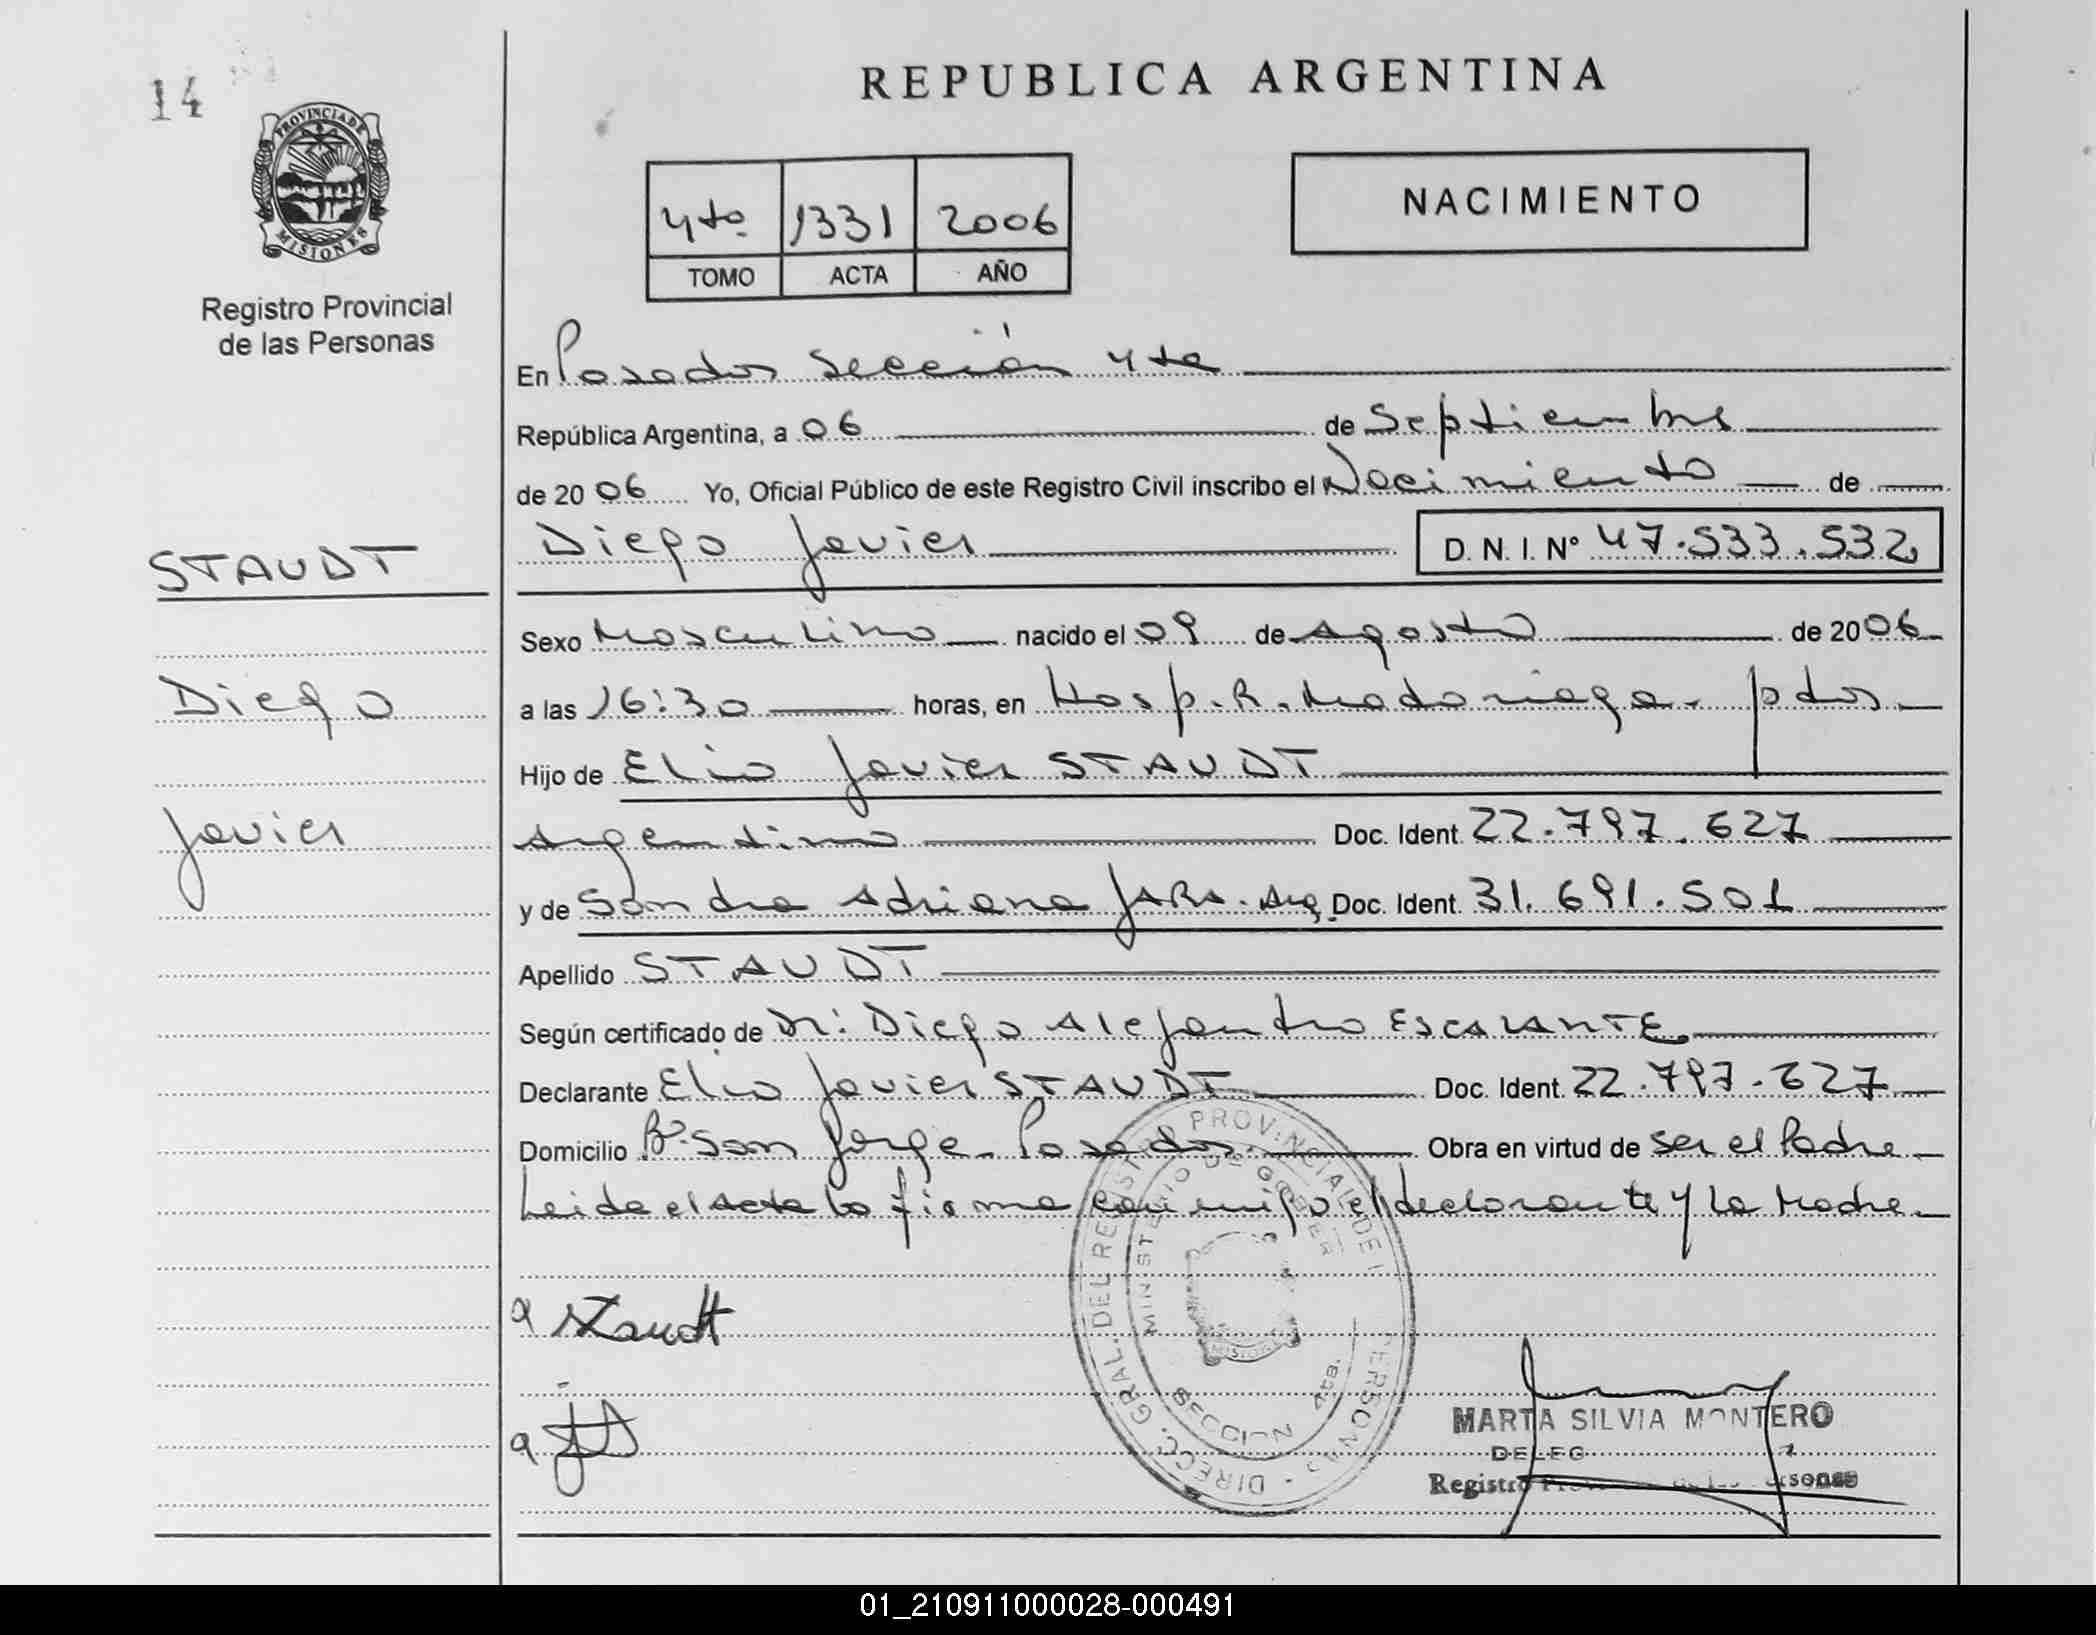 14
PROVINCIA DE
MISIONES
Registro Provincial
de las Personas
REPUBLICA ARGENTINA
4to. 1331 2006
TOMO ACTA AÑO
NACIMIENTO
En Posadas Sección 4ta
República Argentina, a 06 de Septiembre
de 2006 Yo, Oficial Público de este Registro Civil inscribo el Nacimiento de
Diego Javier D. N. I. Nº 47.533.532
STAUDT
Diego
Javier
Sexo Masculino nacido el 09 de Agosto de 2006
a las 16:30 horas, en Hosp. R. Madariaga - pdas.
Hijo de Elio Javier STAUDT
Argentino Doc. Ident. 22.797.627
y de Sandra Adriana JARA - Arg. Doc. Ident. 31.691.501
Apellido STAUDT
Según certificado de Dr: Diego Alejandro ESCALANTE
Declarante Elio Javier STAUDT Doc. Ident. 22.797.627
Domicilio Bº. San Jorge - Posadas. Obra en virtud de ser el Padre
Leida el acta la firma conmigo el declarante y la Madre
Staudt
DIRECC. GRAL. DEL REGISTRO PROVINCIAL DE PERSONAS
MINISTERIO DE GOBIER
MISIONES
SECCION 4ta.
MARTA SILVIA MONTERO
DELEG
Registro
01_210911000028-000491